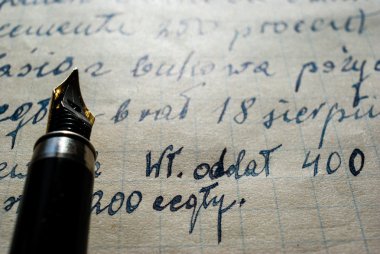 cemente 200 procent
z bukowa poży
brał 18 sierpni
Wł. oddał 400
200 cegły.